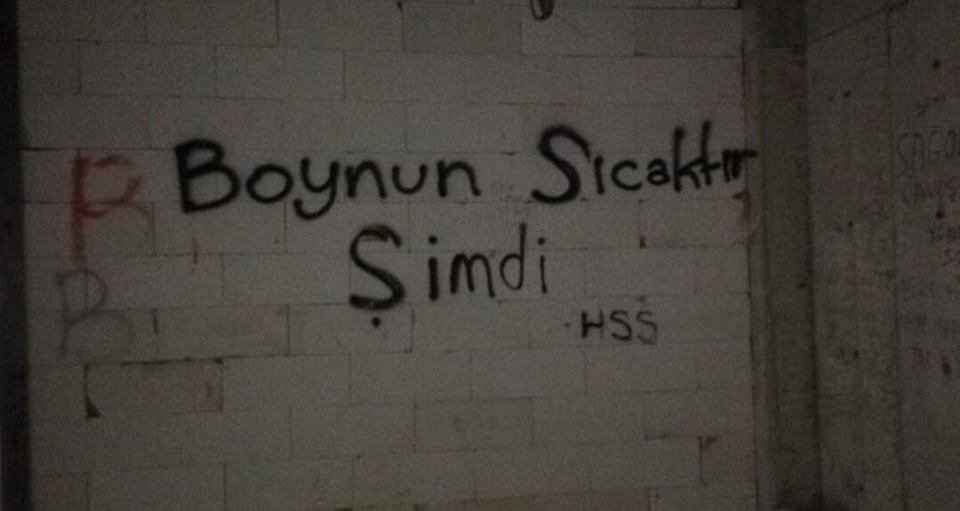 Boynun Sıcaktır
Şimdi
-HSS
R
B